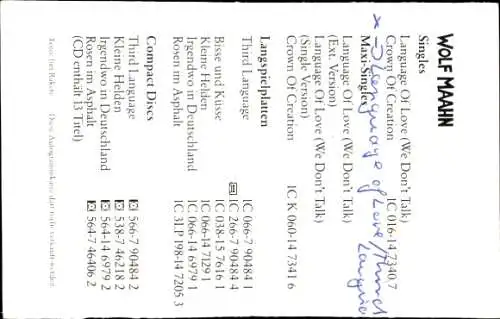 WOLF MAAHN
Singles
Language Of Love (We Don't Talk)
Crown Of Creation 1C 016-14 7340 7
Maxi-Singles
x → Language of Love / Third Language
Language Of Love (We Don't Talk)
(Ext. Version)
Language Of Love (We Don't Talk)
(Single Version)
Crown Of Creation 1C K 060-14 7341 6
Langspielplatten
Third Language 1C 066-7 90484 1
1C 266-7 90484 4
Bisse und Küsse 1C 038-15 7616 1
Kleine Helden 1C 066-14 7129 1
Irgendwo in Deutschland 1C 066-14 6979 1
Rosen im Asphalt 1C 31P 198-14 7205 3
Compact Discs
Third Language 566-7 90484 2
Kleine Helden 538-7 46218 2
Irgendwo in Deutschland 564-14 6979 2
Rosen im Asphalt 564-7 46406 2
(CD enthält 13 Titel)
Diese Autogrammkarte darf nicht verkauft werden.